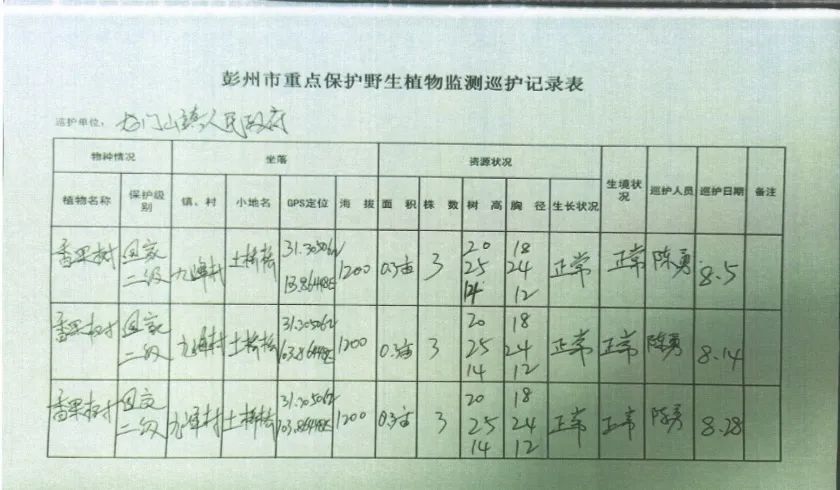 彭州市重点保护野生植物监测巡护记录表
巡护单位：龙门山镇人民政府
物种情况 坐落 资源状况 生境状况 巡护人员 巡护日期 备注
植物名称 保护级别 镇、村 小地名 GPS定位 海拔 面积 株数 树高 胸径 生长状况
香果树 国家二级 九峰村 土桥坛 1200 0.3亩 3 20 25 14 18 24 12 正常 正常 陈勇 8.5
香果树 国家二级 九峰村 土桥坛 1200 0.3亩 3 20 25 14 18 24 12 正常 正常 陈勇 8.14
香果树 国家二级 九峰村 土桥坛 1200 0.3亩 3 20 25 14 18 24 12 正常 正常 陈勇 8.28